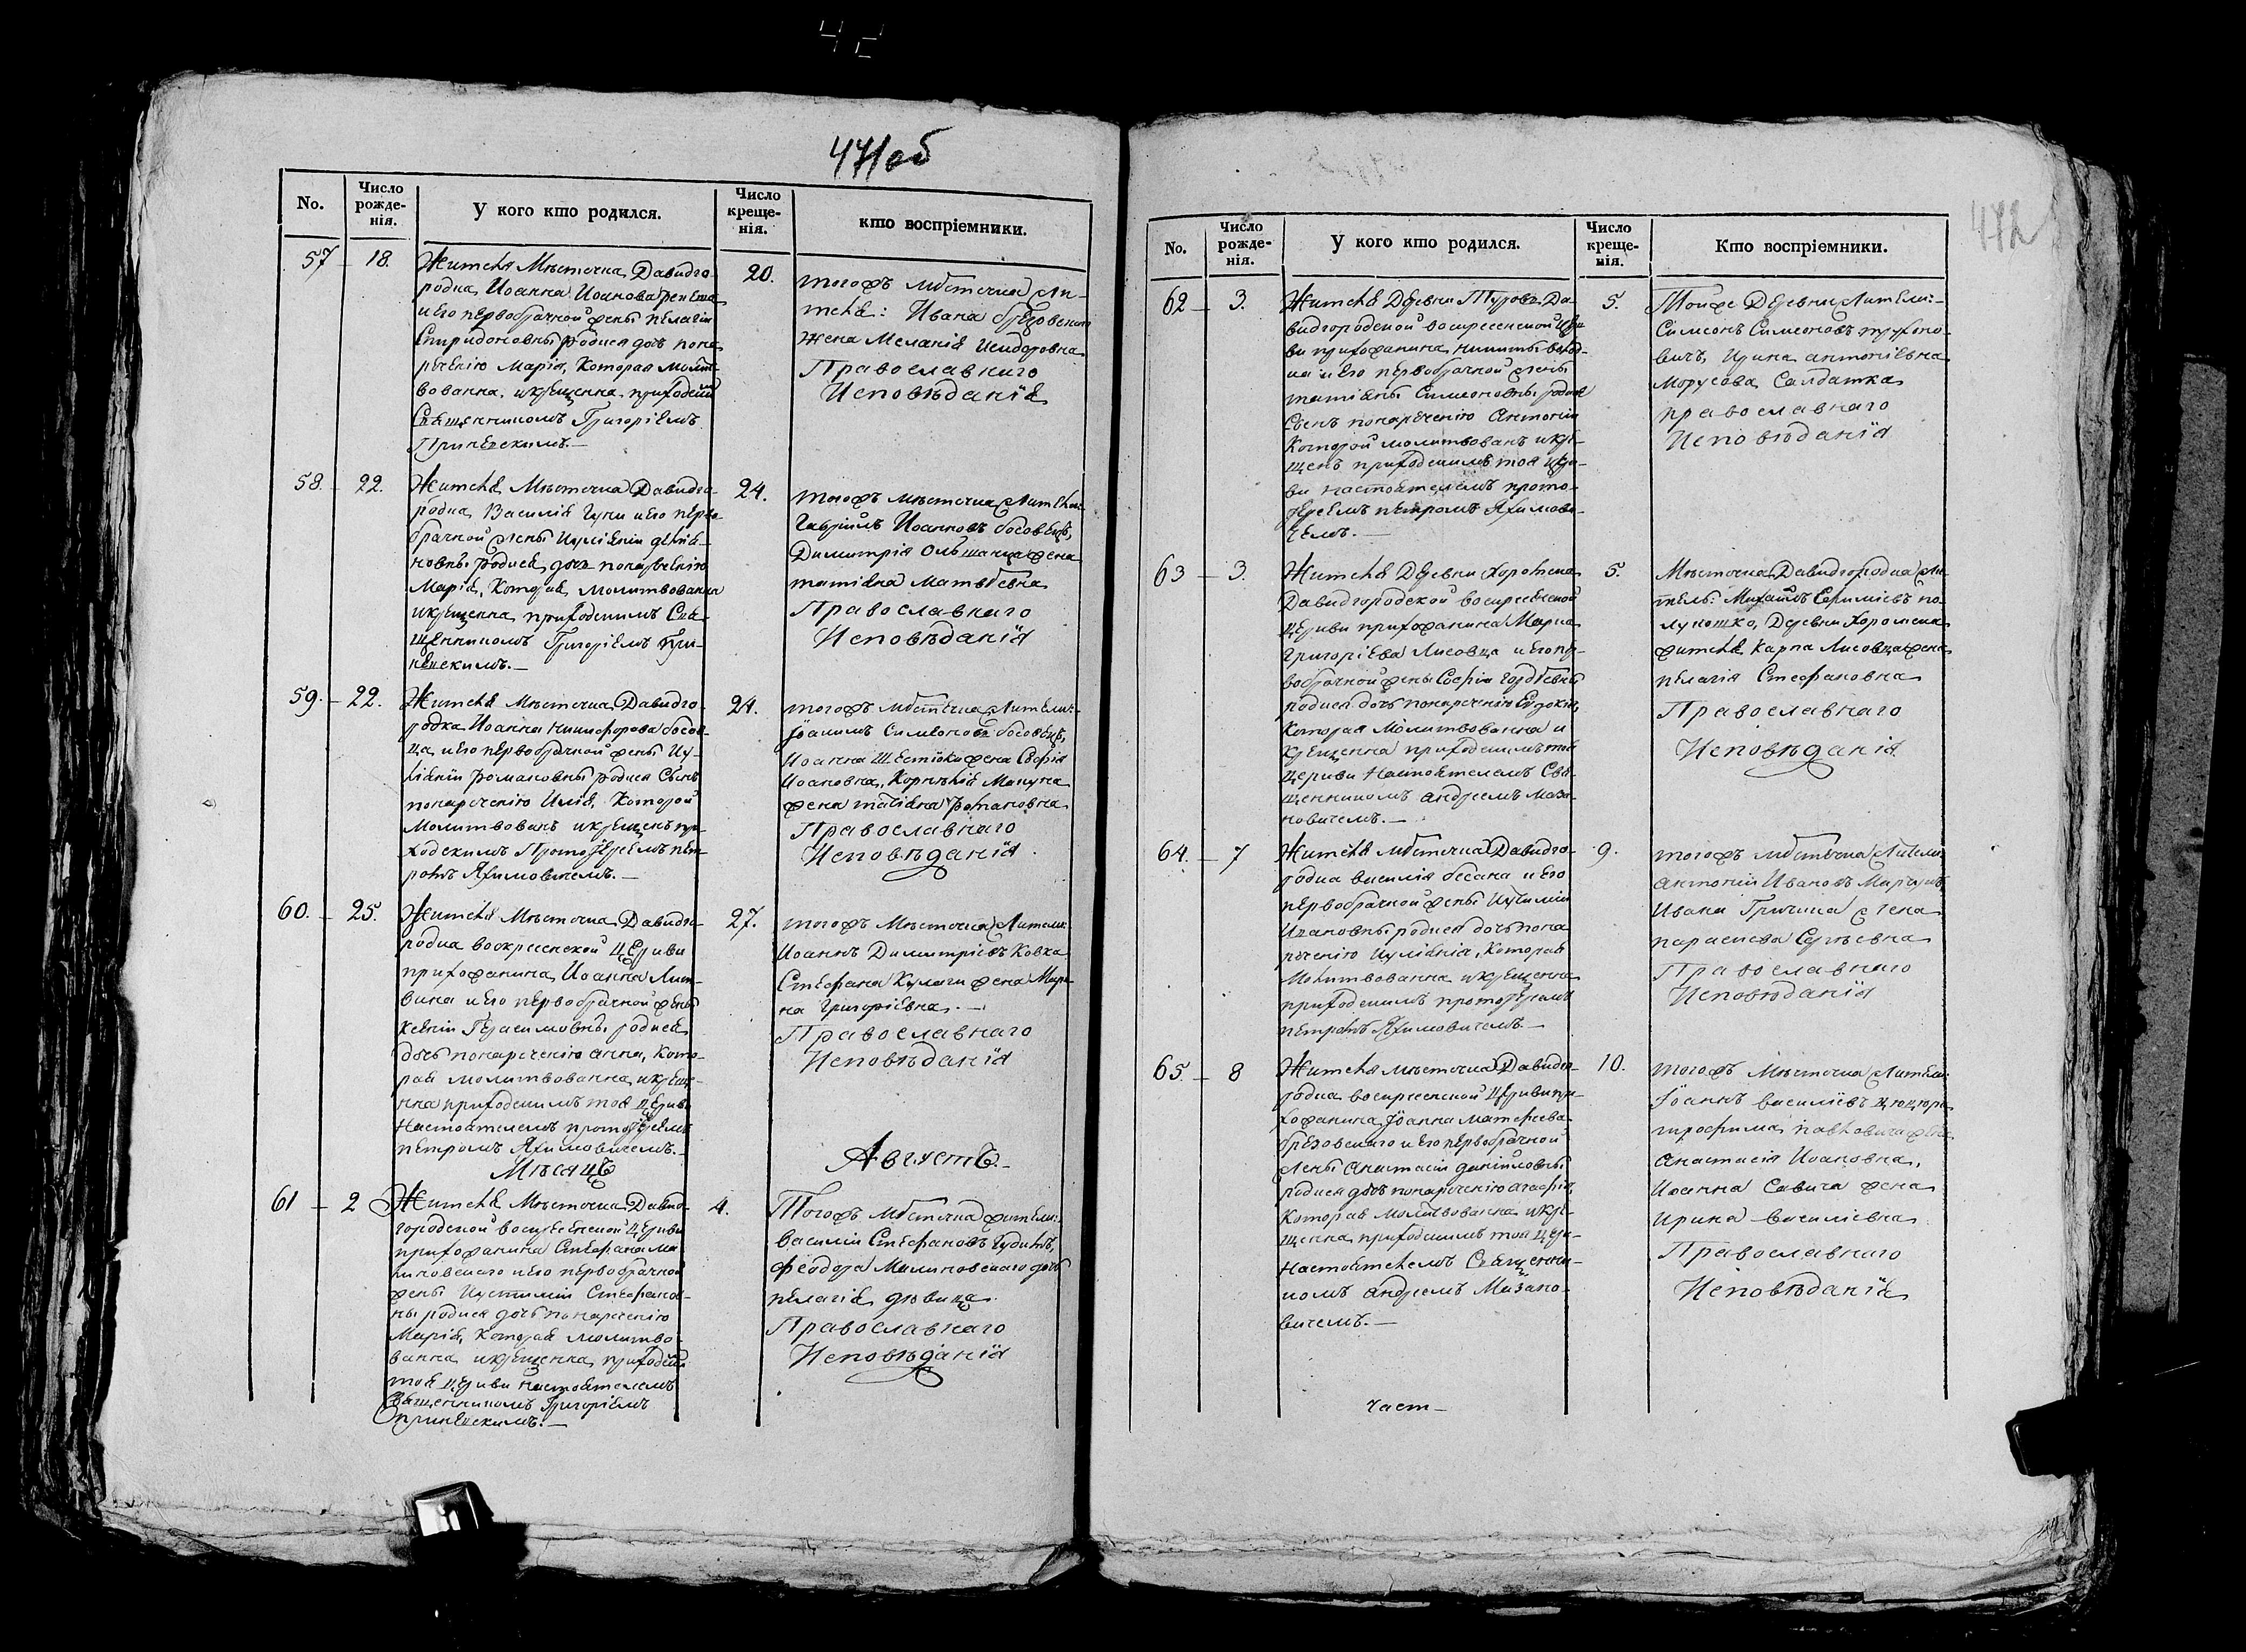 471об
No.
Число рожденія.
У кого кто родился.
Число крещенія.
кто воспріемники.
57 – 18.
Жителя Мѣстечка Давидго-
родка Иоанна Иоанова
и его первобрачной жены Пелагіи
Спиридоновны родися дочь пона
речению Марія, Которая молит
вованна, и крещенна приходским
Священникомъ Григоріемъ
20.
тогожъ мѣстечка жи-
теля: Ивана
жена Меланія Исидоровна
Православнаго
Исповѣданія
58. – 22.
Жителя Мѣстечка Давидго-
родка Василія и его перво-
брачной жены Иуліаніи
родися дочь понаречению
Марія, Которая молитвованна
и крещенна приходскимъ Свя-
щенникомъ Григоріемъ
24.
тогожъ мѣстечка жители
Гавріилъ Иоанновъ
Димитрія Ольшанца жена
татіяна Матвѣевна
Православнаго
Исповѣданія
59. – 22.
Жителя Мѣстечка Давидго-
родка Иоанна Никифорова босов-
ца и его первобрачной жены Иу-
ліяніи Романовны родися Сынъ
понаречению Илія, Которой
Молитвованъ и крещенъ при-
ходскимъ Протоіереемъ пет-
ромъ Яхимовичемъ. –
24.
тогожъ мѣстечка жители:
Іоакимъ Симеоновъ босовецъ,
Иоанна жена Софія
Иоановна, Корнилія
жена татіяна Романовна
Православнаго
Исповѣданія
60. – 25.
Жителя Мѣстечка Давидго-
родка воскресенской Церкви
прихожанина Иоанна Лит-
вина и его первобрачной жены
Ксеніи Герасимовны родися
дочь понаречению анна, Кото-
рая молитвованна и креще-
нна приходскимъ тоя Церкви
Настоятелемъ протоіереемъ
петромъ Яхимовичемъ. –
27.
тогожъ Мѣстечка жители
Иоаннъ Димитріевъ Ковха
Стефана жена Мари-
на Григоріевна. –
Православнаго
Исповѣданія
Мѣсяцъ
Августъ. –
61 – 2
Жителя Мѣстечка Давид-
городской воскресенской Церкви
прихожанина Стефана Ма-
линовскаго и его первобрачной
жены Иустиніи Стефанов-
ны родися дочь понаречению
Марія, Которая молитво-
ванна и крещенна приходским
тоя Церкви Настоятелемъ
Священникомъ Григоріемъ
4.
Тогожъ мѣстечка жители:
василій Стефановъ
Феодора Малиновскаго дочь
пелагія девица
Православнаго
Исповѣданія
472
No.
Число рожденія.
У кого кто родился.
Число крещенія.
Кто воспріемники.
62 – 3.
Жителя Деревни Туровъ Да-
видгородской воскресенской Церк
ви прихожанина никиты
и его первобрачной жены
татіяны Симеоновны родися
Сынъ понаречению Антоній
Которой молитвованъ и кре-
щенъ приходскимъ тоя Церк-
ви настоятелемъ прото-
іереемъ петромъ Яхимови-
чемъ. –
5.
Тойже Деревни жители:
Симеонъ Симеоновъ трухно-
вичъ, Ирина антоніевна
Морусова Салдатка
православнаго
Исповѣданія
63 – 3.
Жителя Деревни Хоромска
Давидгородской воскресенской
Церкви прихожанина Марка
Григоріева Лисовца и его пер-
вобрачной жены Софіи Гордѣевны
родися дочь понаречению Евдокія,
Которая Молитвованна и
крещенна приходскимъ тоя
церкви Настоятелемъ Свя-
щенникомъ андреемъ Маза-
новичемъ. –
5.
Мѣстечка Давидгородка жи-
тель: Михаилъ по-
лукошко, Деревни Хоромска
жителя Карпа Лисовца жена
пелагія Стефановна
Православнаго
Исповѣданія
64. – 7
Жителя мѣстечка Давидго-
родка василія бесана и его
первобрачной жены Иуліаніи
Ивановны родися дочь пона
речению Иуліянія, Которая
Молитвованна и крещенна
приходскимъ протоіереемъ
петромъ Яхимовичемъ. –
9.
тогожъ мѣстечка жители
антоній Ивановъ
Ивана Гричина жена
параскева Сергѣевна
Православнаго
Исповѣданія
65. – 8
Жителя мѣстечка Давидго-
родка воскресенской Церкви при-
хожанина Іоанна матфеева
брезовскаго и его первобрачной
жены анастасіи даніиловны
родися дочь понаречению агафія,
Которая молитвованна и кре-
щенна приходскимъ тоя Церк-
Настоятелемъ Священни-
комъ андреемъ Мазано-
вичемъ. –
10.
тогожъ Мѣстечка жители:
Іоаннъ василіевъ
трофима павловича жена
анастасія Иоановна,
Иоанна Савича жена
ирина василіевна
Православнаго
Исповѣданія
част –